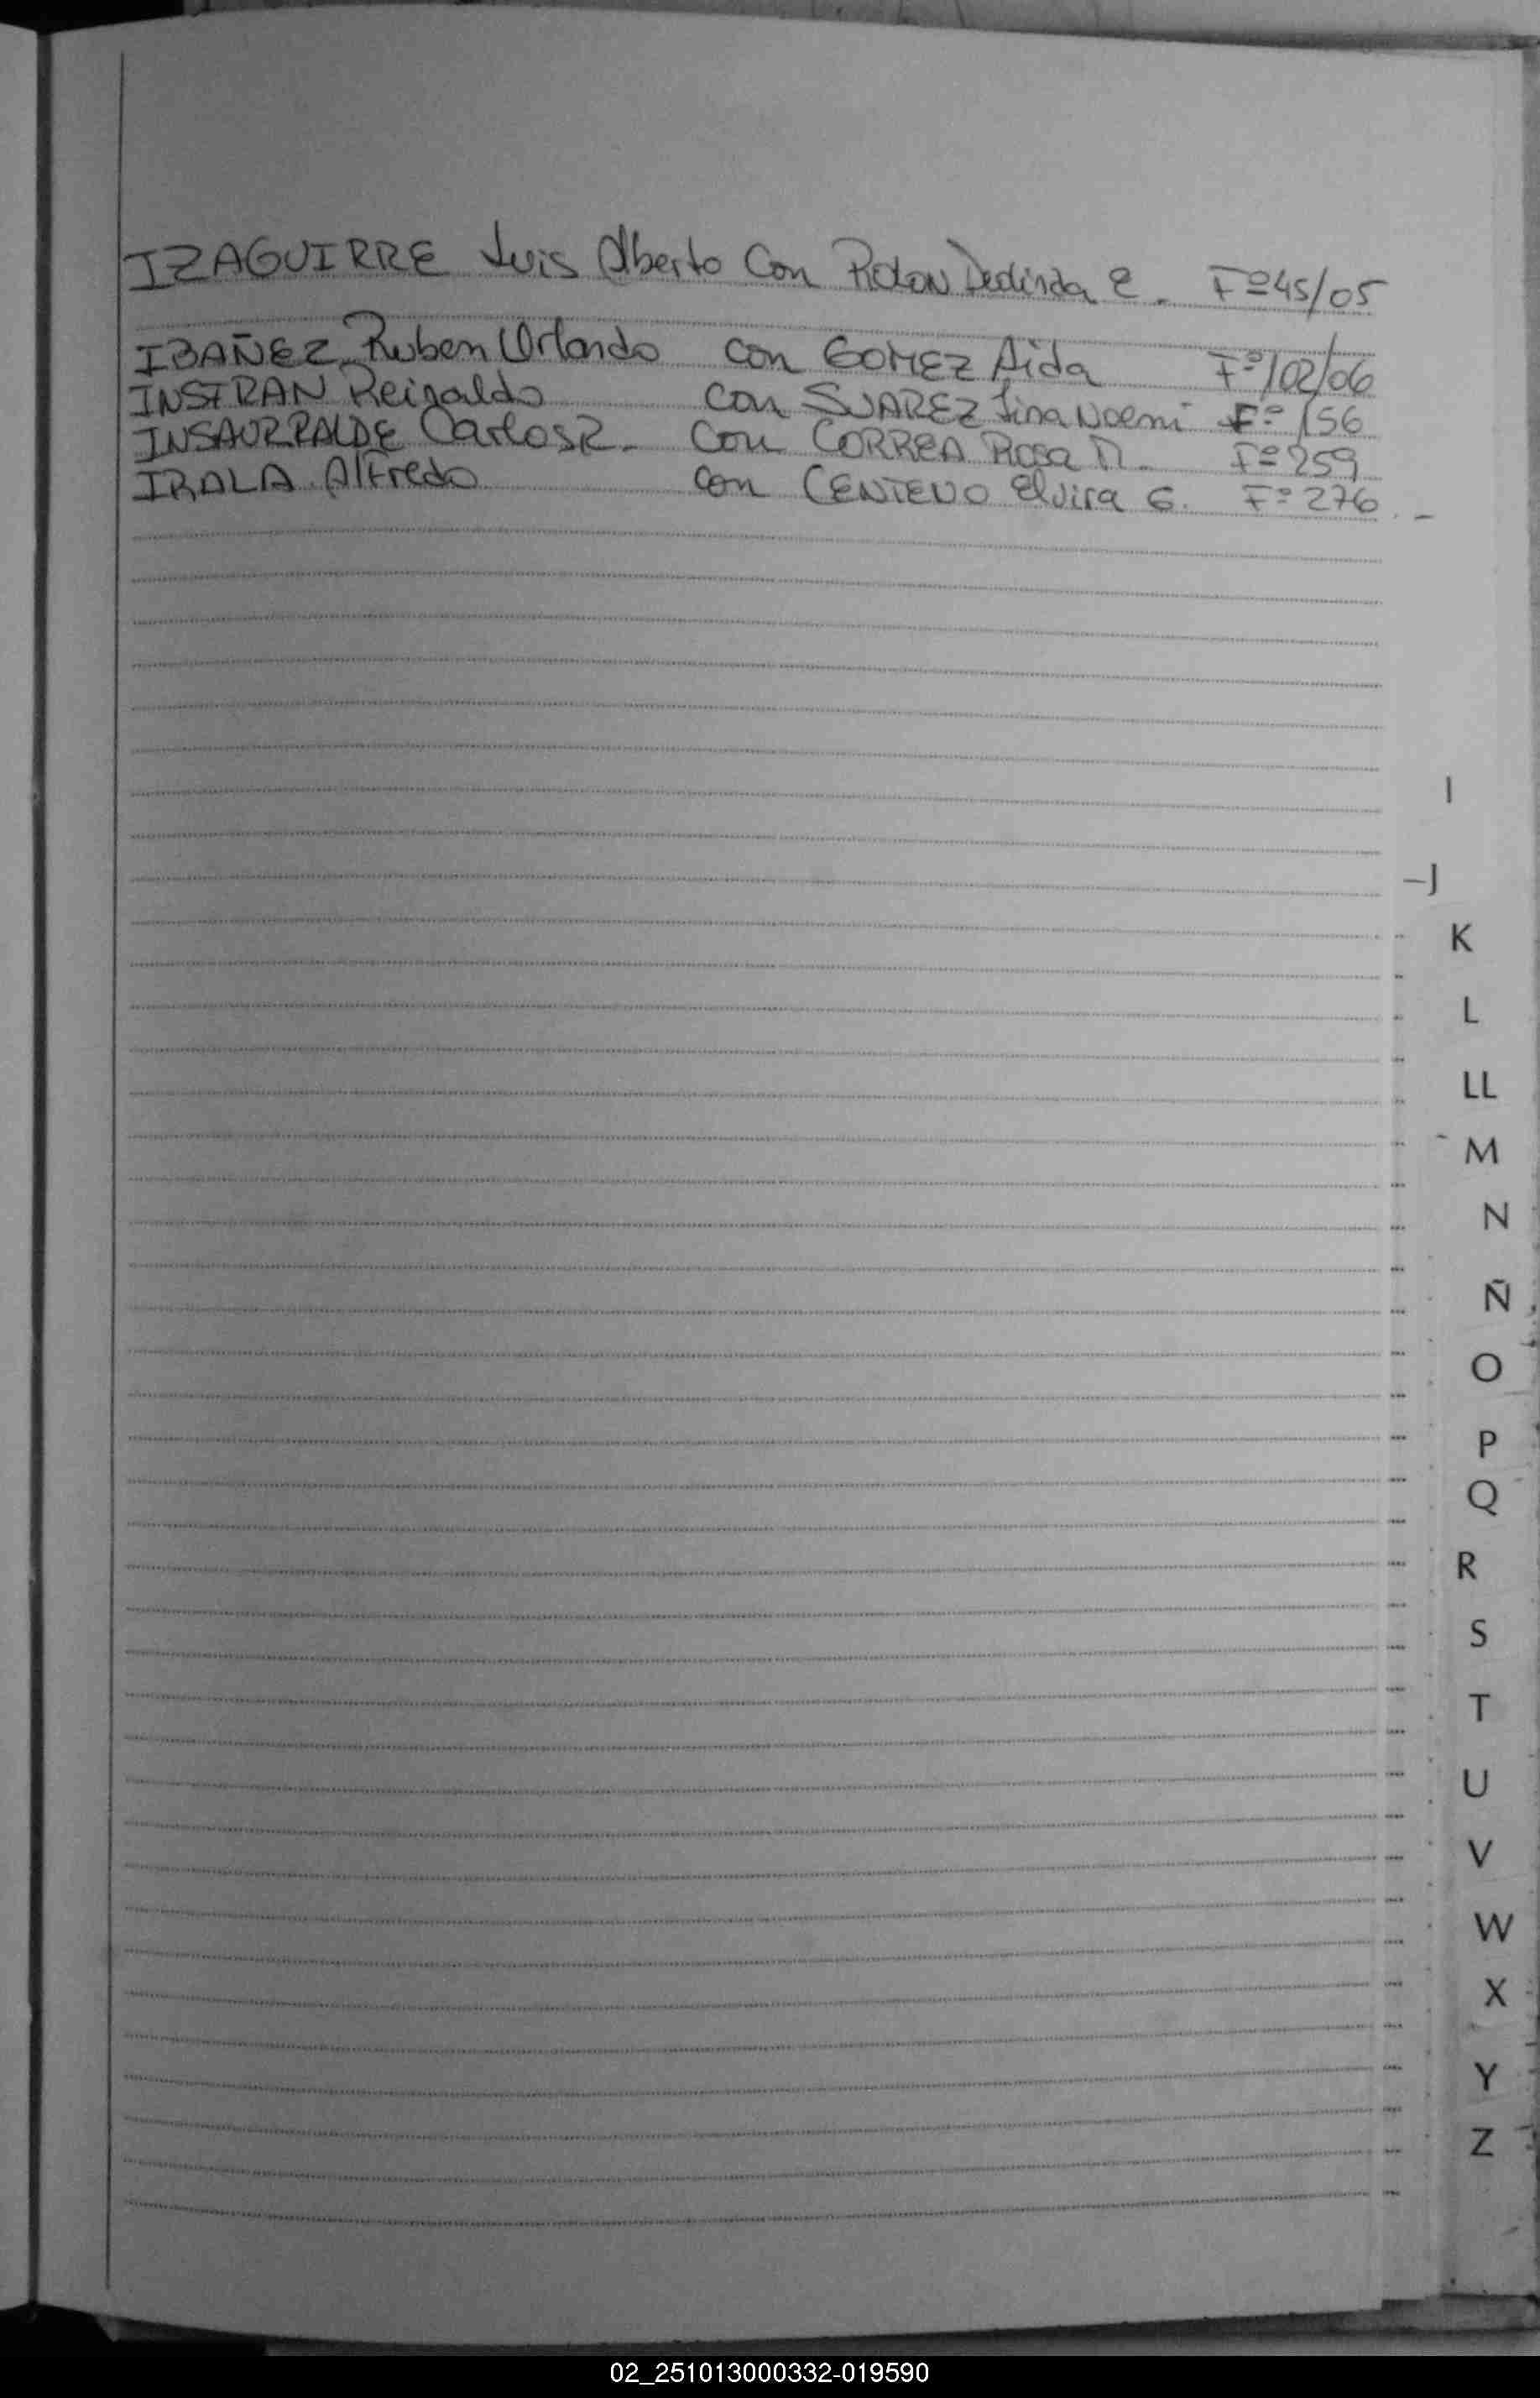 IZAGUIRRE Luis Alberto Con Rolon Dedinda E. Fº45/05
IBAÑEZ Ruben Orlando con GOMEZ Aida Fº102/06
INSFRAN Reinaldo con SUAREZ Lina Noemi Fº 156
INSAURRALDE Carlos R. Con CORREA Rosa M. Fº 259
IRALA Alfredo con CENTENO Elvira G. Fº 276.-
I
J
K
L
LL
M
N
Ñ
O
P
Q
R
S
T
U
V
W
X
Y
Z
02_251013000332-019590